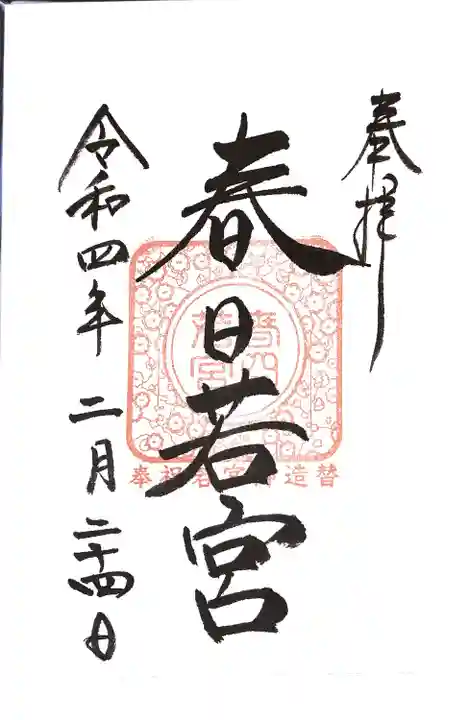 奉拝
春日若宮
令和四年 二月二十四日
奉祝若宮御造替